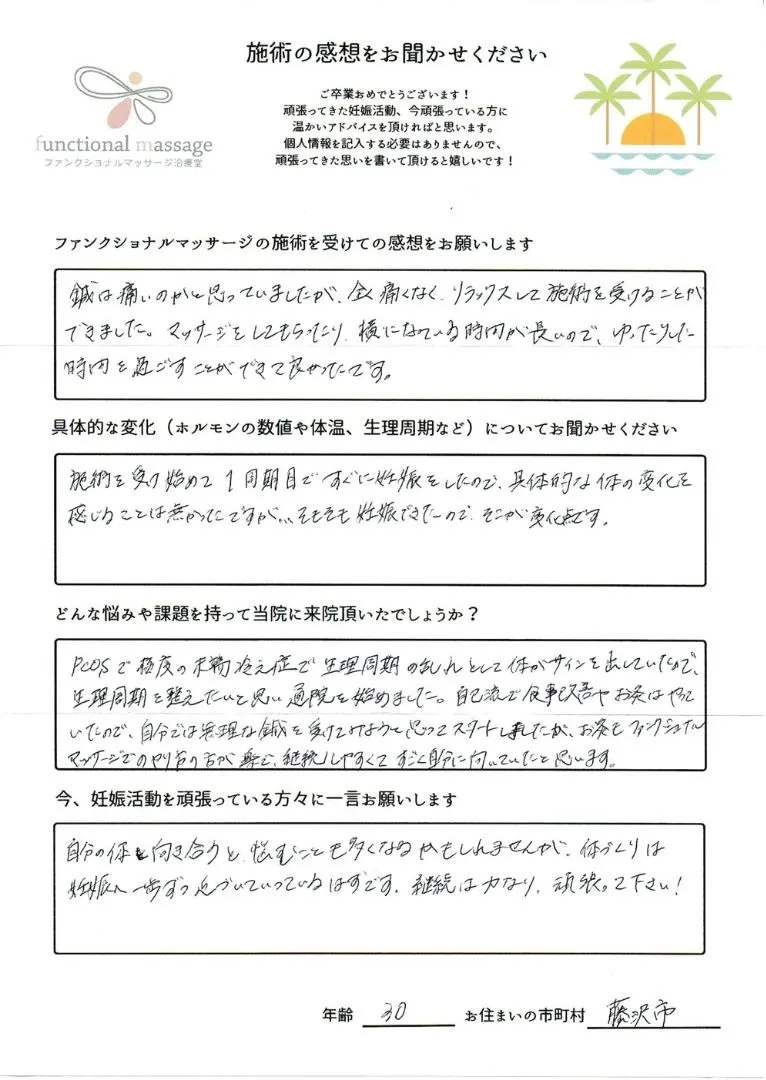 施術の感想をお聞かせください
ご卒業おめでとうございます！
頑張ってきた妊娠活動、今頑張っている方に
温かいアドバイスを頂ければと思います。
個人情報を記入する必要はありませんので、
頑張ってきた思いを書いて頂けると嬉しいです！
functional massage
ファンクショナルマッサージ治療室
ファンクショナルマッサージの施術を受けての感想をお願いします
鍼は痛いのかと思っていましたが、全く痛くなく、リラックスして施術を受けることが
できました。マッサージをしてもらったり、横になっている時間が長いので、ゆったりした
時間を過ごすことができて良かったです。
具体的な変化（ホルモンの数値や体温、生理周期など）についてお聞かせください
施術を受け始めて1周期目ですぐに妊娠をしたので、具体的な体の変化を
感じることは無かったですが...そもそも妊娠できたので、そこが変化点です。
どんな悩みや課題を持って当院に来院頂いたでしょうか？
PCOSで極度の末端冷え症で生理周期の乱れとして体がサインを出していたので、
生理周期を整えたいと思い通院を始めました。自己流で食事改善やお灸はやって
いたので、自分では無理な鍼を受けてみようと思ってスタートしましたが、お灸もファンクショナル
マッサージでのやり方の方が楽で、継続しやすくてすごく自分に向いていたと思います。
今、妊娠活動を頑張っている方々に一言お願いします
自分の体と向き合うと、悩むことも多くなるかもしれませんが、体づくりは
妊娠へ一歩ずつ近づいていっているはずです。継続は力なり、頑張って下さい！
年齢 30 お住まいの市町村 藤沢市